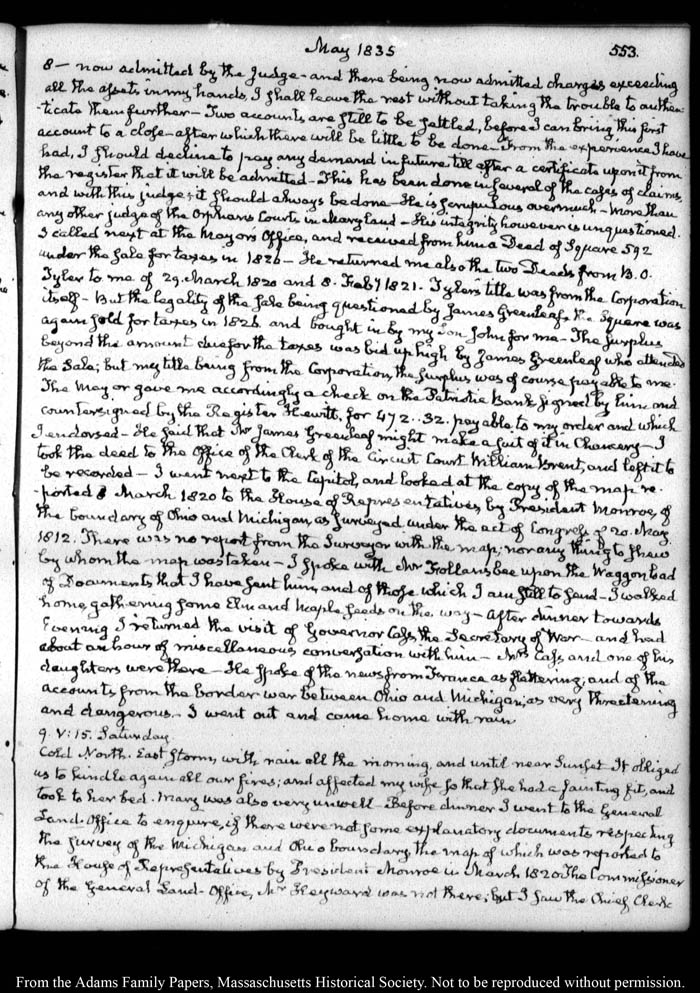 May 1835 553.
8 — now admitted by the Judge - and there being now admitted charges exceeding
all the assets in my hands, I shall leave the rest without taking the trouble to authen-
-ticate them further — Two accounts are still to be settled, before I can bring this first
account to a close - after which there will be little to be done - From the experience I have
had, I should decline to pay any demand in future till after a certificate upon it from
the register that it will be admitted - This has been done in several of the cases of claims,
and with this judge, it should always be done - He is scrupulous overmuch - more than
any other judge of the Orphans Courts in Maryland - His integrity however is unquestioned.
I called next at the Mayor's Office, and received from him a Deed of Square 592
under the sale for taxes in 1826 — He returned me also the two Deeds from B. O.
Tyler to me of 29. March 1820 and 8. Feby 1821. Tyler's title was from the Corporation
itself - But the legality of the sale being questioned by James Greenleaf, the Square was
again sold for taxes in 1826 and bought in by my Son John for me - The Surplus
beyond the amount due for the taxes was bid up high by James Greenleaf who attended
the Sale; but my title being from the Corporation, the surplus was of course payable to me.
The Mayor gave me accordingly a check on the Patriotic Bank signed by him and
countersigned by the Register Hewitt, for 472..32. payable to my order and which
I endorsed - He said that Mr James Greenleaf might make a suit of it in Chancery - I
took the deed to the Office of the Clerk of the Circuit Court William Brent, and left it to
be recorded — I went next to the Capitol, and looked at the copy of the map re-
-ported 8 March 1820 to the House of Representatives by President Monroe, of
the boundary of Ohio and Michigan, as surveyed under the act of Congress of 20. May
1812. There was no report from the Surveyor with the map; nor any thing to shew
by whom the map was taken — I spoke with Mr Frollansbee upon the Waggon load
of Documents that I have sent him, and of those which I am still to send - I walked
home, gathering some Elm and Maple seeds on the way - After dinner towards
Evening I returned the visit of Governor Cass, the Secretary of War - and had
about an hour of miscellaneous conversation with him - Mrs Cass and one of his
daughters were there - He spoke of the news from France as flattering; and of the
accounts from the border war between Ohio and Michigan, as very threatening
and dangerous - I went out and came home with rain
9. V: 15. Saturday.
Cold North. East Storm, with rain all the morning, and until near Sunset - It obliged
us to kindle again all our fires; and affected my wife so that she had a fainting fit, and
took to her bed. Mary was also very unwell - Before dinner I went to the General
Land-Office to enquire, if there were not some explanatory documents respecting
the survey of the Michigan and Ohio boundary, the map of which was reported to
the House of Representatives by President Monroe in March 1820. The Commissioner
of the General Land-Office, Mr Hayward was not there; but I saw the Chief Clerk
From the Adams Family Papers, Massachusetts Historical Society. Not to be reproduced without permission.